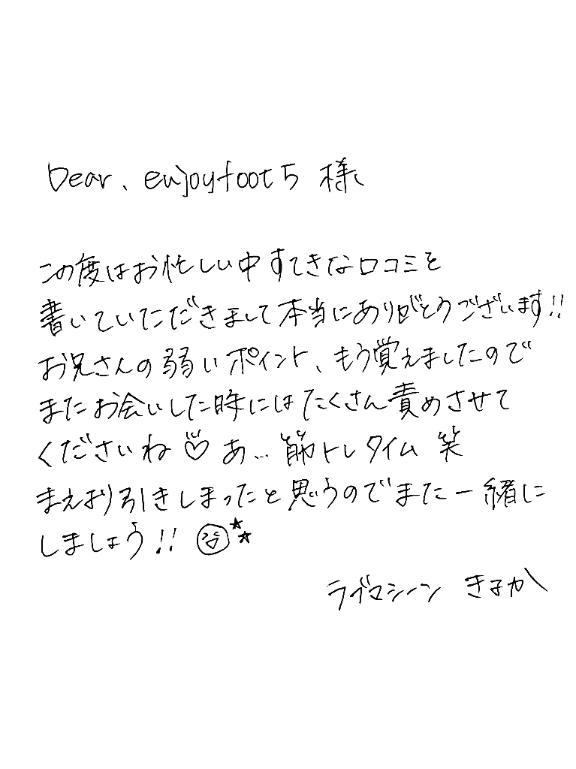 Dear、enjoyfoot5 様
この度はお忙しい中すてきな口コミを
書いていただきまして本当にありがとうございます!!
お兄さんの弱いポイント、もう覚えましたので
またお会いした時にはたくさん責めさせて
くださいね♡ あ… 筋トレタイム 笑
まえより引きしまったと思うのでまた一緒に
しましょう!!
ラブマシーン きよか